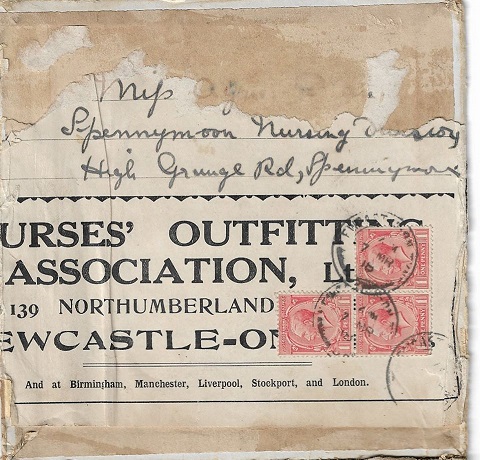 Miss
Spennymoor Nursing Division
High Grange Rd, Spennymoor
URSES' OUTFITTING
ASSOCIATION, L
139 NORTHUMBERLAND
EWCASTLE-ON
And at Birmingham, Manchester, Liverpool, Stockport, and London.
ONE PENNY